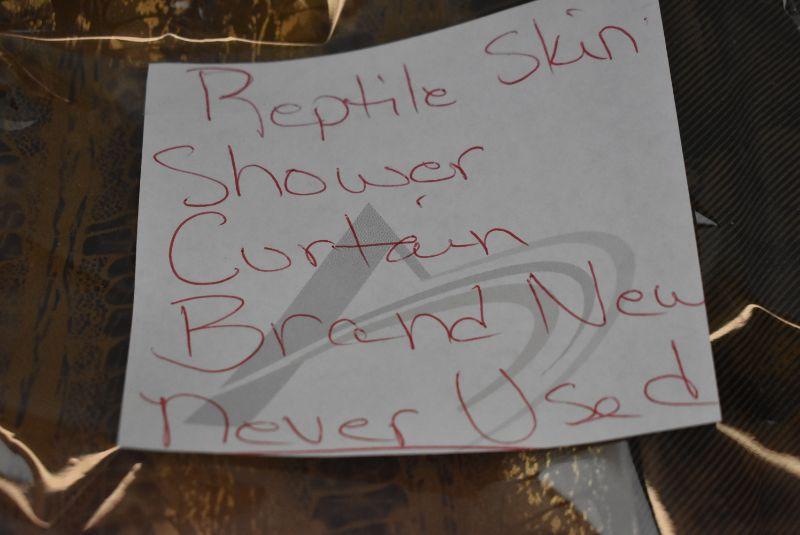 Reptile Skin
Shower
Curtain
Brand New
never Used